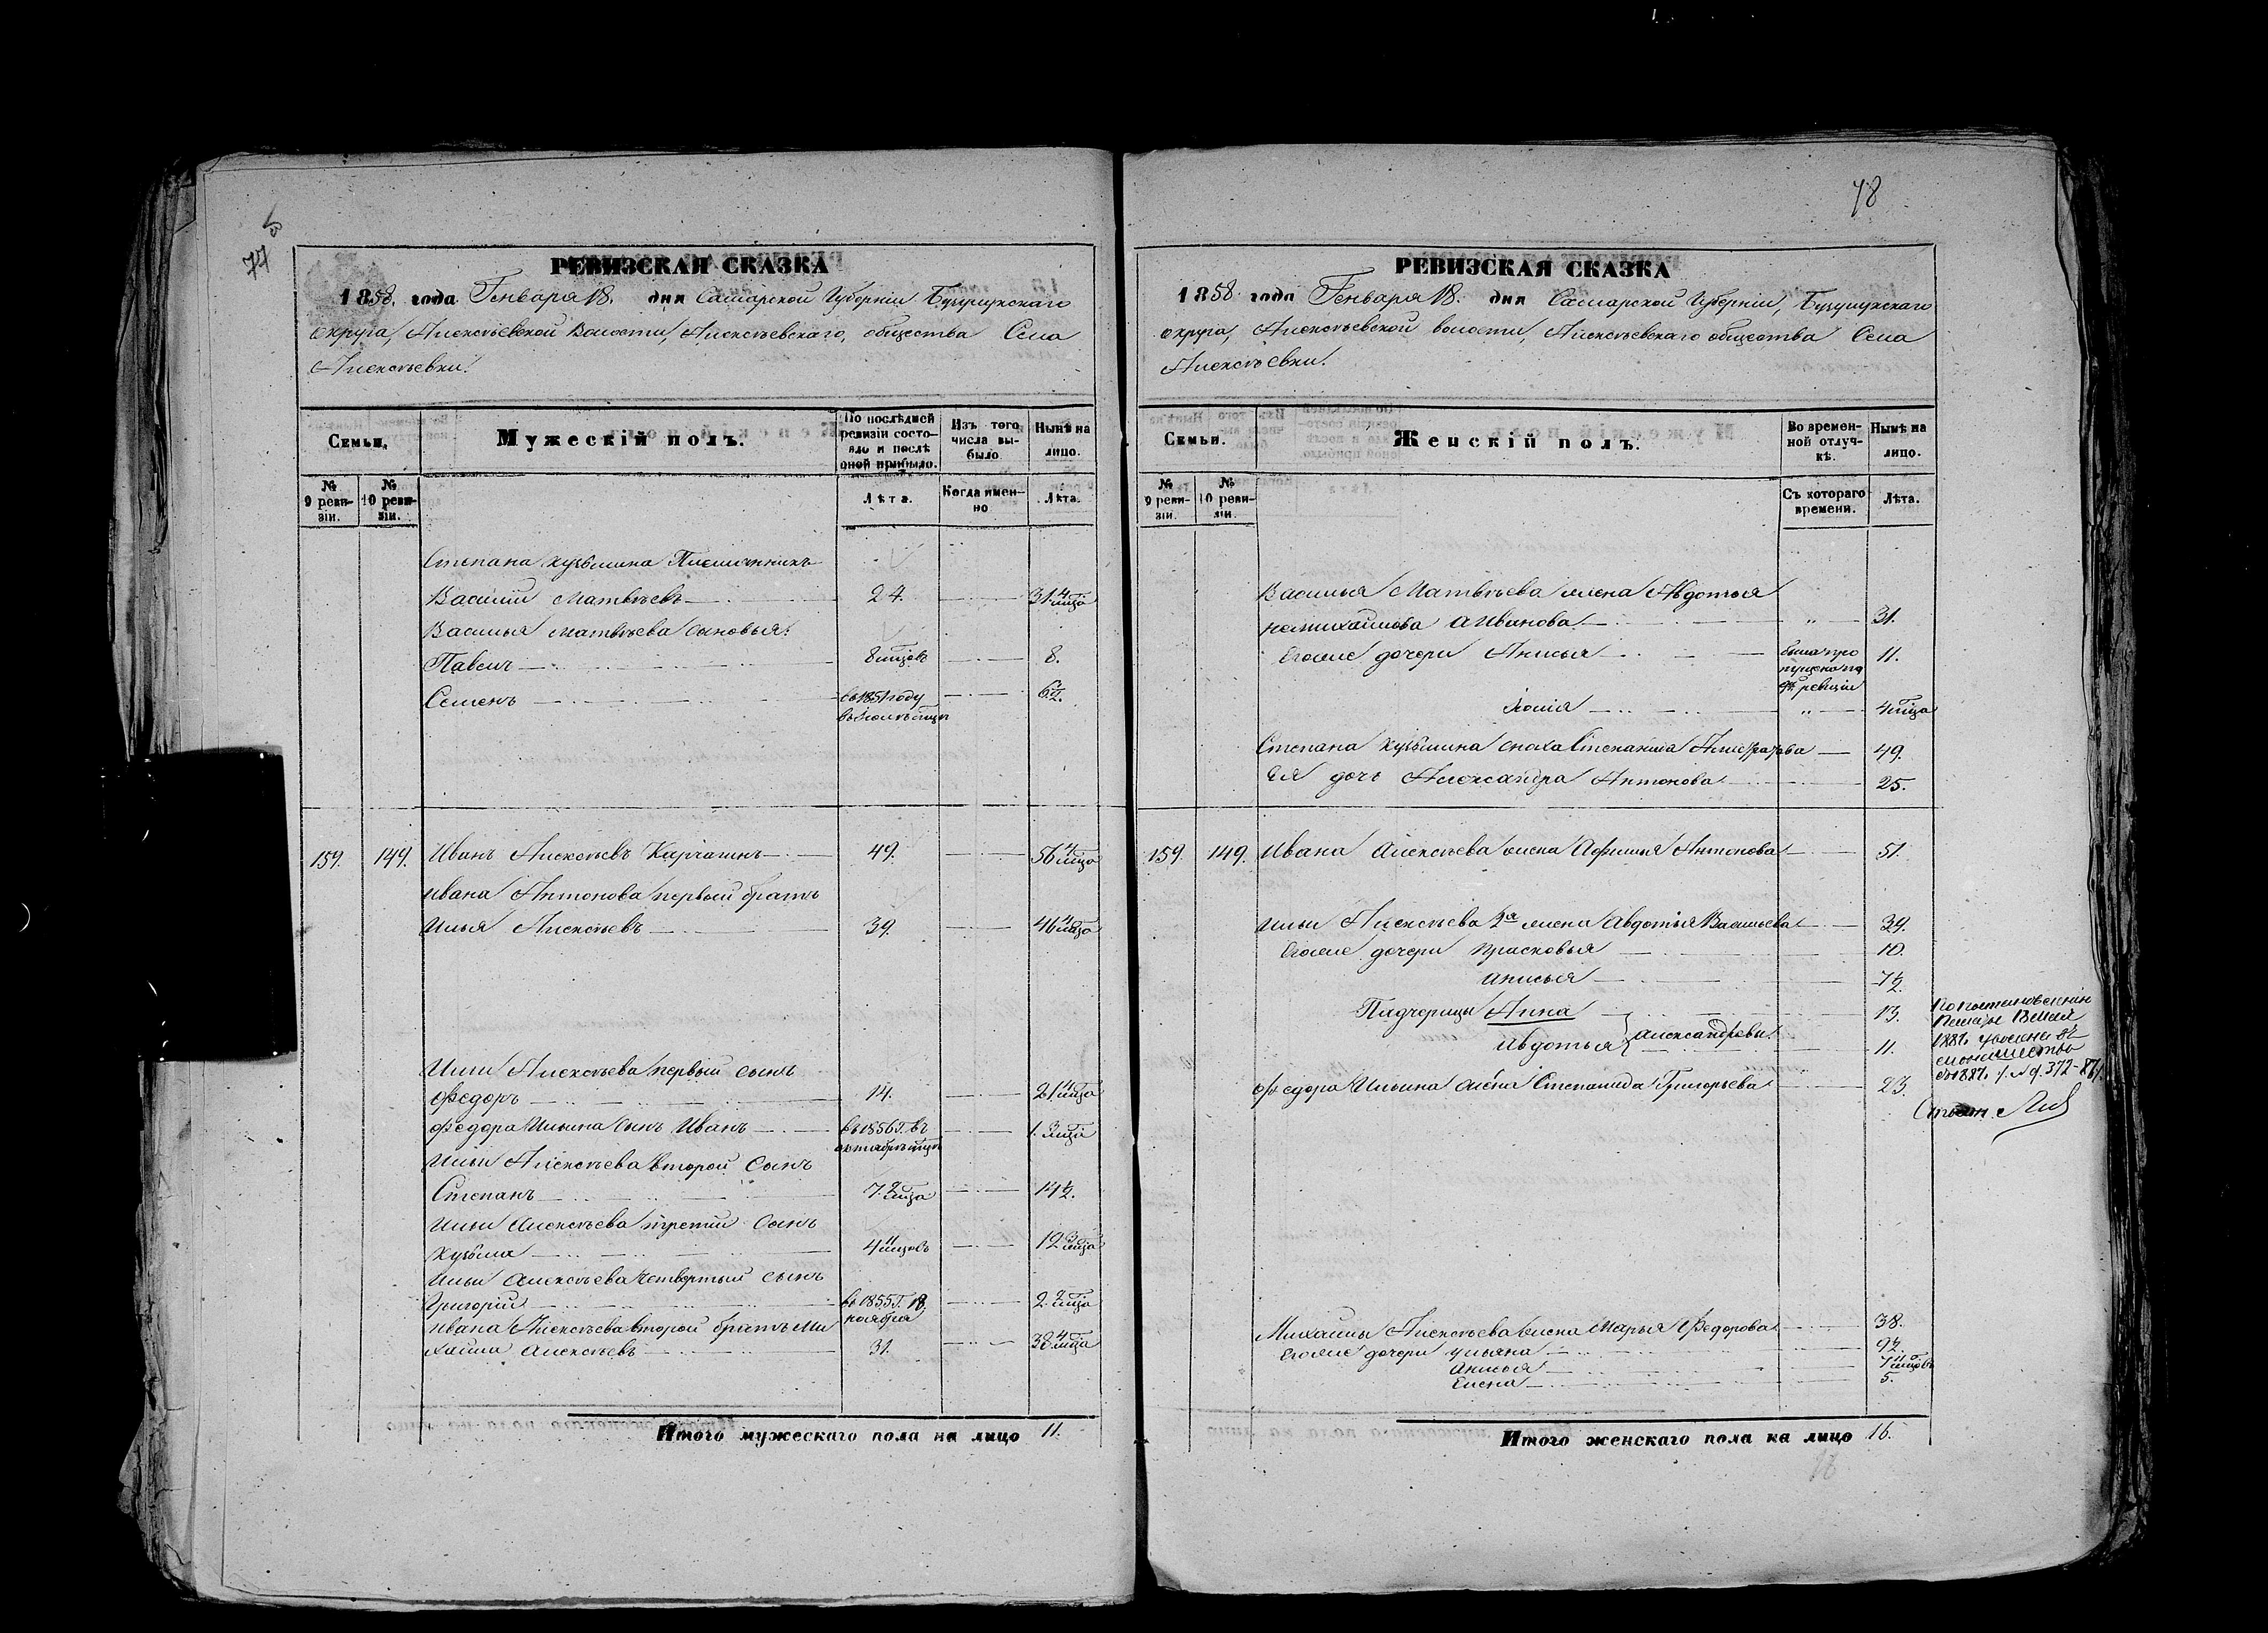 77
РЕВИЗСКАЯ СКАЗКА
1858. года Генваря 18. дня Самарской Губерніи Бузулукскаго
округа, Алексѣевской Волости, Алексѣевскаго, общества Села
Алексѣевки.
Семьи.
Мужескій полъ.
По послѣдней
ревизіи состо-
яло и послѣ
оной прибыло.
Изъ того
числа вы-
было.
Нынѣ на
лицо.
№
9 реви-
зіи.
№
10 реви-
зіи.
Лѣта.
Когда имен-
но
Лѣта.
Степана Кузьмина Племянникъ
Василій Матвѣевъ 24. 31 4 мца
Василья Матвѣева сыновья:
Павелъ 8 мцовъ 8.
Семенъ въ 1851 году 6 1/2.
159. 149. Иванъ Алексѣевъ Карташевъ 49. 56 4 мца
Ивана Антонова первый братъ
Илья Алексѣевъ 39. 46 4 мца
Ильи Алексѣева первый сынъ
Федоръ 14. 21 4 мца
Федора Ильина сынъ Иванъ въ 1856 г. въ 1. 3 мца
октябрѣ мцѣ
Ильи Алексѣева второй Сынъ
Степанъ 7. 2 мца 14 1/2.
Ильи Алексѣева третій Сынъ
Кузьма 4 11 мцовъ 12 3 мца
Ильи Алексѣева четвертый сынъ
Григорій въ 1855 г. 18. 2. 2 мца
ноября
Ивана Алексѣева второй братъ Ми
хайла Алексѣевъ 31. 38 4 мца
Итого мужескаго пола на лицо 11.
78
РЕВИЗСКАЯ СКАЗКА
1858 года Генваря 18. дня Самарской Губерніи, Бузулукскаго
округа, Алексѣевской волости, Алексѣевскаго общества Села
Алексѣевки.
Семьи.
Женскій полъ.
Во времен-
ной отлуч-
кѣ.
Нынѣ на
лицо.
№
9 реви-
зіи.
№
10 реви-
зіи.
Съ котораго
времени.
Лѣта.
Василья Матвѣева жена Авдотья
не Михайлова а Иванова „ 31.
Его же дочери Анисья была про 11.
пущена по
9й ревизіи
„ 4 мца
Степана Кузьмина сноха Степанида 49.
Ея дочь Александра Антонова 25.
159. 149. Ивана Алексѣева жена Афимья Антонова 51.
Ильи Алексѣева 2я жена Авдотья Васильева 39.
Его же дочери Прасковья 10.
Анисья 7 1/2.
Падчерицы Анна 13.
Авдотья Александровы 11.
Федора Ильина жена Степанида Григорьева 23.
Михайлы Алексѣева жена Марья Федорова 38.
Его же дочери Ульяна 9 1/2.
Анисья 7 11 мцовъ
Елена 5.
Итого женскаго пола на лицо 16.